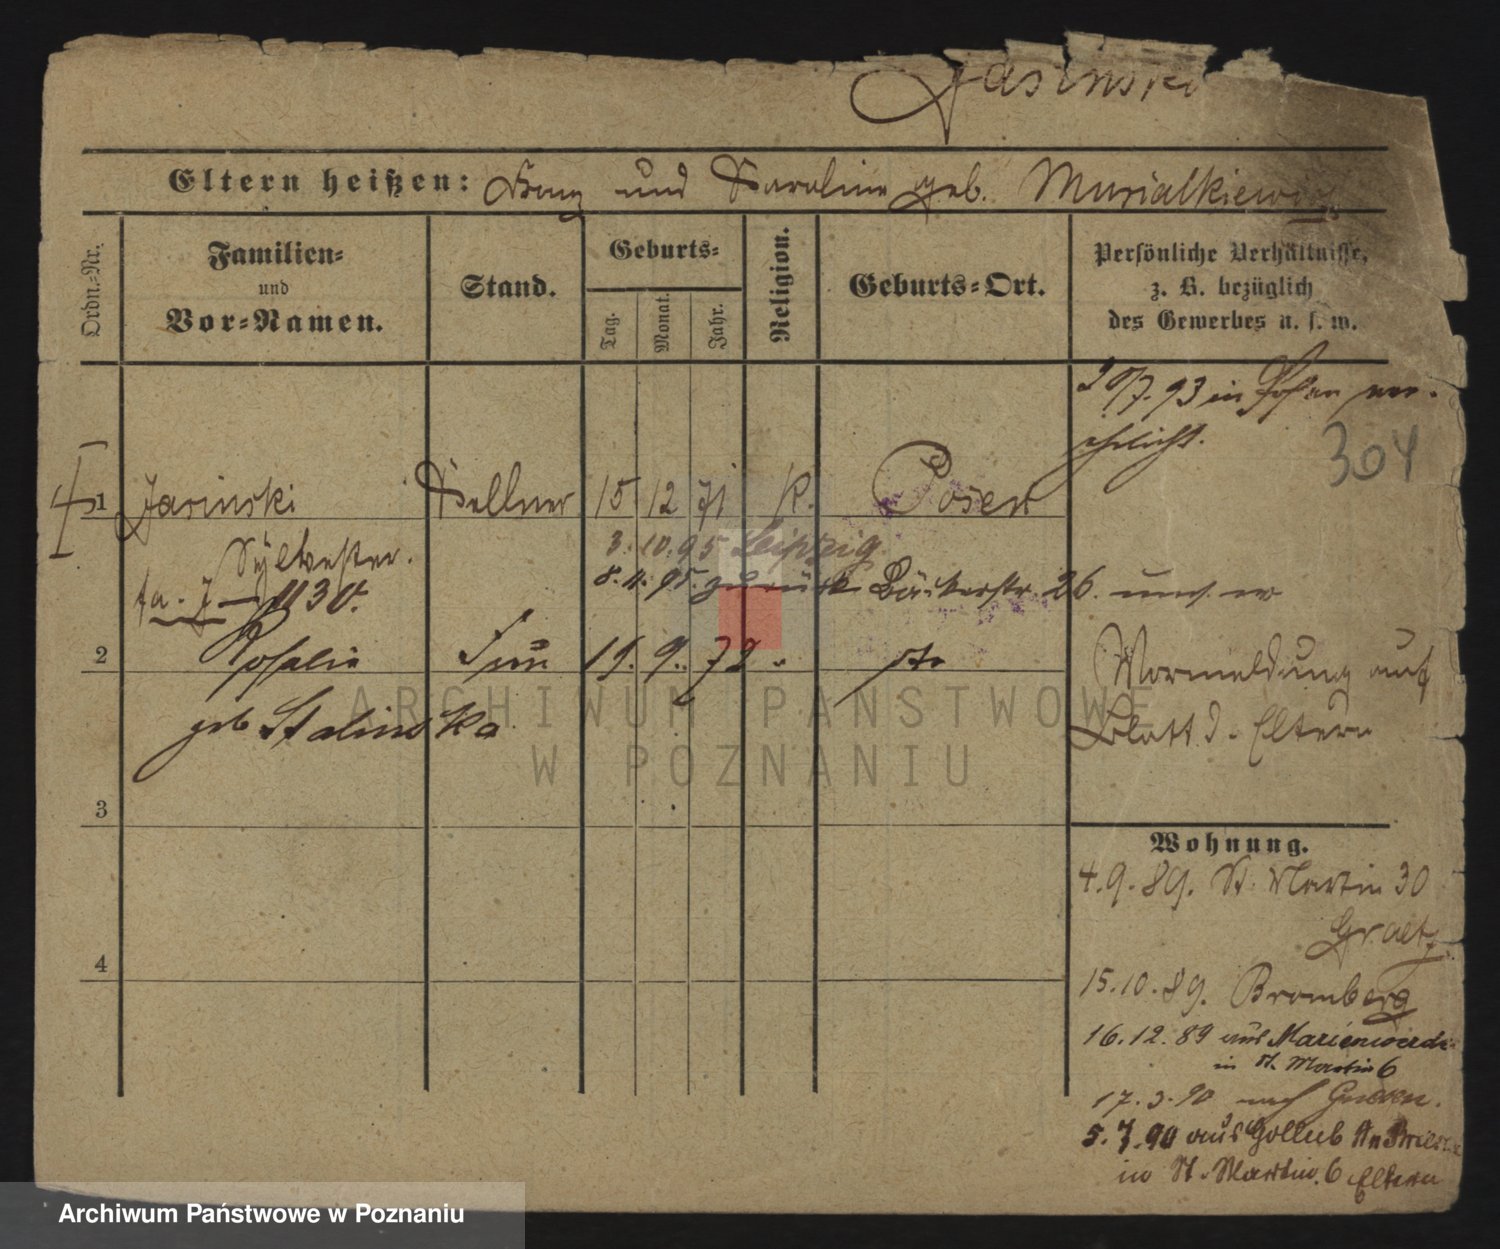 Jasinski
Eltern heißen: Franz und Karoline geb. Musialkiewicz
Ordn.-Nr.
Familien- und Vor-Namen.
Stand.
Geburts-
Tag.
Monat.
Jahr.
Religion.
Geburts-Ort.
Persönliche Verhältnisse,
z. B. bezüglich
des Gewerbes u. s. w.
7.93 in Posen ver-
ehelicht.
304
1 Jasinski Kellner 15 12 71 K. Posen
Sylvester.
3. 10. 95 Leipzig
8. 11. 95. zurück Bäckerstr. 26.
2 Rosalie Frau 19. 9. 72 " do
geb Stalinska
Vormeldung auf
Blatt d. Eltern
3
4
Wohnung.
4.9.89. St. Martin 30
Graetz
15.10.89. Bromberg
16.12.89 aus Marienwerder
in St. Martin 6
17.3.90 nach
5.7.90 aus Gollub
in St. Martin 6 Eltern
ARCHIWUM PAŃSTWOWE
W POZNANIU
Archiwum Państwowe w Poznaniu